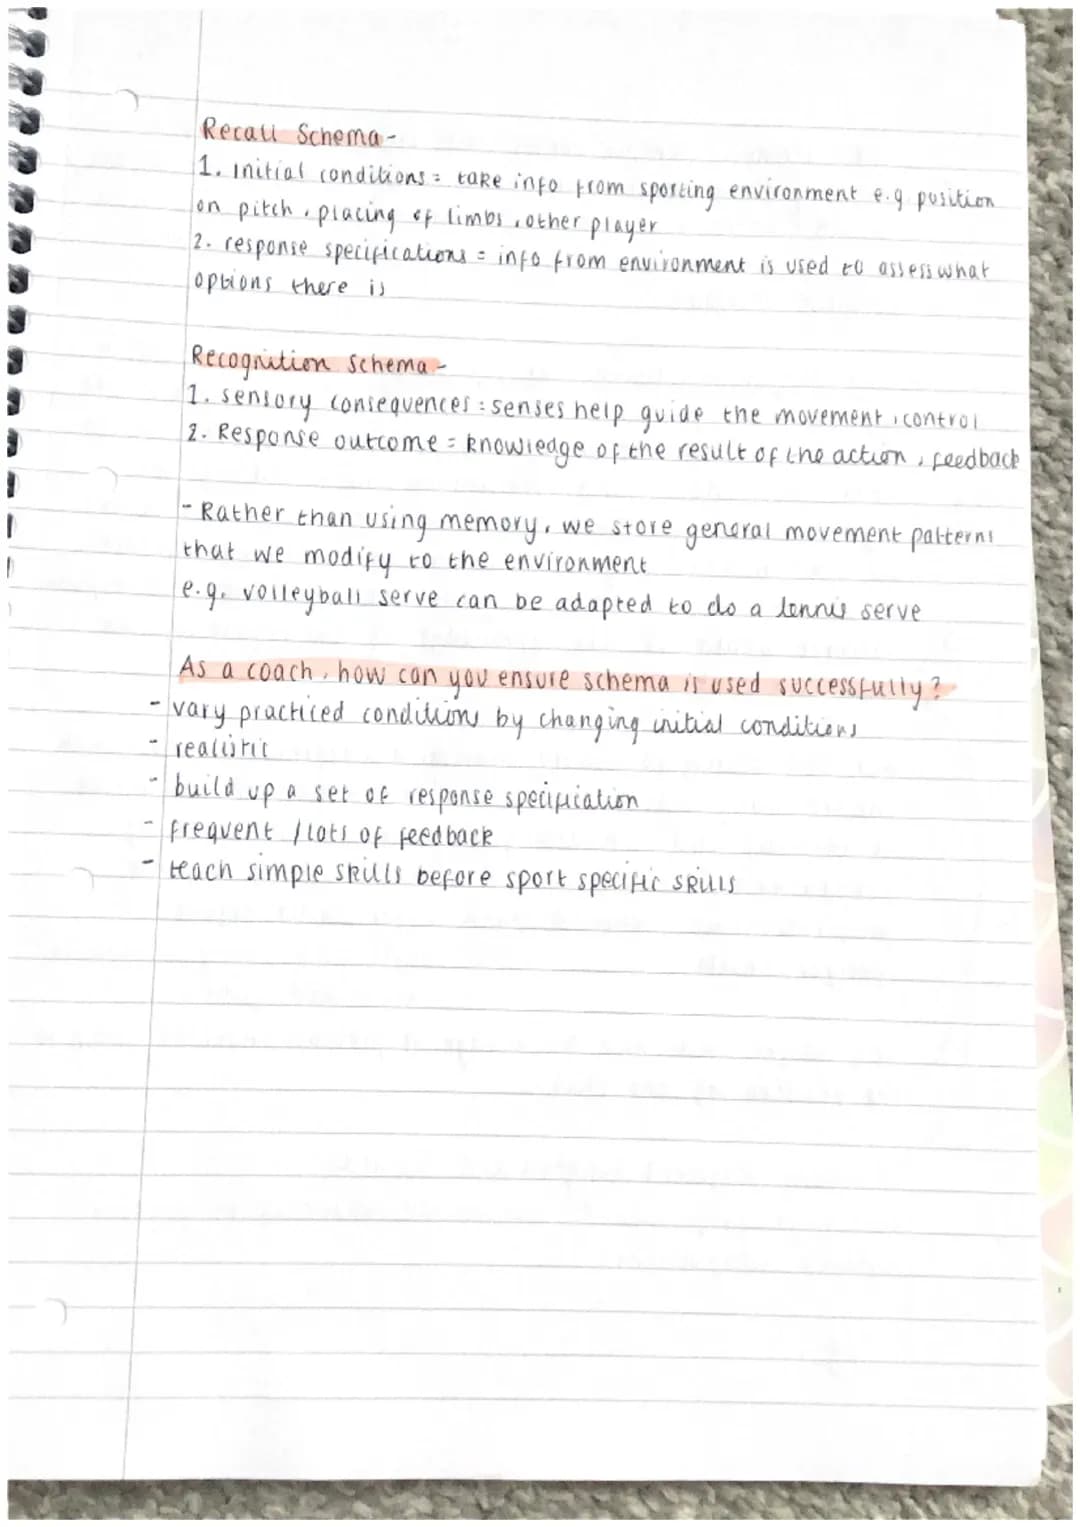 Recall Schema -
1. initial conditions = take info from sporting environment e.g position
on pitch, placing of limbs, other player
2. response specifications = info from environment is used to assess what
options there is
Recognition schema -
1. sensory consequences = senses help guide the movement, control
2. Response outcome = knowledge of the result of the action, feedback
- Rather than using memory, we store general movement patterns
that we modify to the environment
e.g. volleyball serve can be adapted to do a tennis serve
As a coach, how can you ensure schema is used successfully?
- vary practiced conditions by changing initial conditions
- realistic
- build up a set of response specification
- frequent / lots of feedback
- teach simple skills before sport specific skills